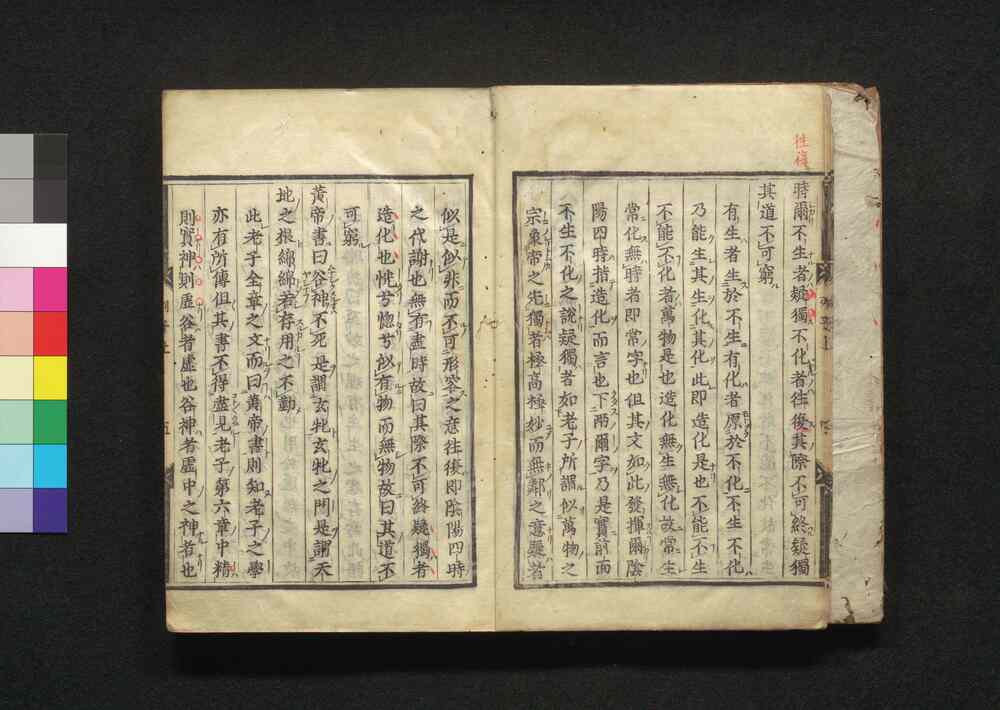 往復
時爾不生者疑獨不化者往復其際不可終疑獨
其道不可窮
有生者生於不生有化者原於不化不生不化
乃能生其生化其化此即造化是也不能不生
不能不化者萬物是也造化無生無化故常生
常化無時者即常字也但其文如此發揮爾陰
陽四時指造化而言也下兩爾字乃是實前面
不生不化之說疑獨者如老子所謂似萬物之
宗象帝之先獨者極高極妙而無鄰之意疑者
似是似非而不可形容之意往復即陰陽四時
之代謝也無有盡時故曰其際不可終疑獨者
造化也恍兮惚兮似有物而無物故曰其道不
可窮
黃帝書曰谷神不死是謂玄牝玄牝之門是謂天
地之根綿綿若存用之不勤
此老子全章之文而曰黃帝書則知老子之學
亦有所傳但其書不得盡見老子第六章中精
則實神則虛谷者虛也谷神者虛中之神者也